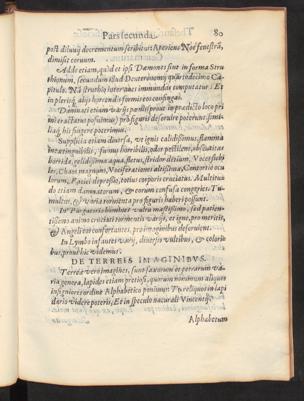 Pars secunda. 80
post diluuij decrementum scribitur: Aperiens Noé fenestrã,
dimisit coruum.
Adde etiam, quòd et ipsi Dæmones sint in forma Stru
thionum, secundum illud Deuteronomij quartodecimo Ca
pitulo. Nã struthio inter aues immundas computatur: Et
in plerisq́; alijs horrendis formis eos confingas.
Damnati etiam varijs
mi ac tractatus posuimus) pro figuris deseruire poterunt: simi
liaq́; his fingere poterimus.
Supplicia etiam diuersa, vt ignis calidissimus, flamma
inextinguibilis, fumus horribilis, odor pestilens, obscuritas
horrida, gelidissima aqua, fletus, stridor dentium, Voces fubi
les, Chaos magnum, Vociferationes altissimæ, Contortio ocu
lorum, Faciei depressio, totius corporis cruciatus. Multitu
do etiam damnatorum, & eorum confusa congeries: Tu-
multus, & varia tormenta pro figuris haberi possunt.
In Purgatorio homines vultu mæstissimo, sed patien-
tissimo animo cruciari tormentis varijs, vt igne, pro meritis,
& Angeli eos confortantes, pro imaginibus deseruient.
In Lymbo infantes varij, diuersis vultibus, & colorib
bus, prout hic videmus.
DE TERREIS IMAGINIBVS.
Terreæ verò imagines, sunt saxorum et petrarum va
ria genera, lapides etiam pretiosi, quorum nominum aliquos
insigniores ordine Alphabetico ponimus: Tu reliquos in lapi
darijs videre poteris, Et in speculo naturali Vincentij.
Alphabetum